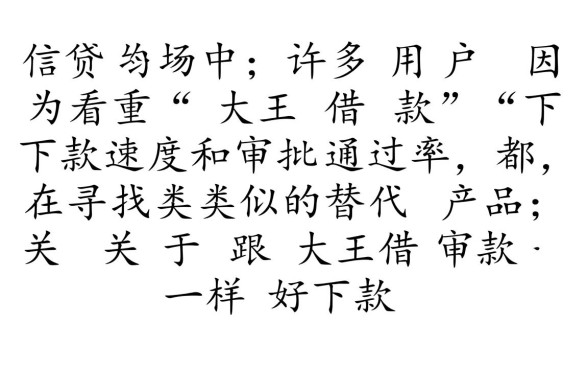 信贷 均场中；许多 用 户 因
为看重“ 大王 借 款”“下
下款速度和审批通过率，都，
在寻找类类似的替代 产品；
关 关 于 跟 大王借 审款·
一样 好下款